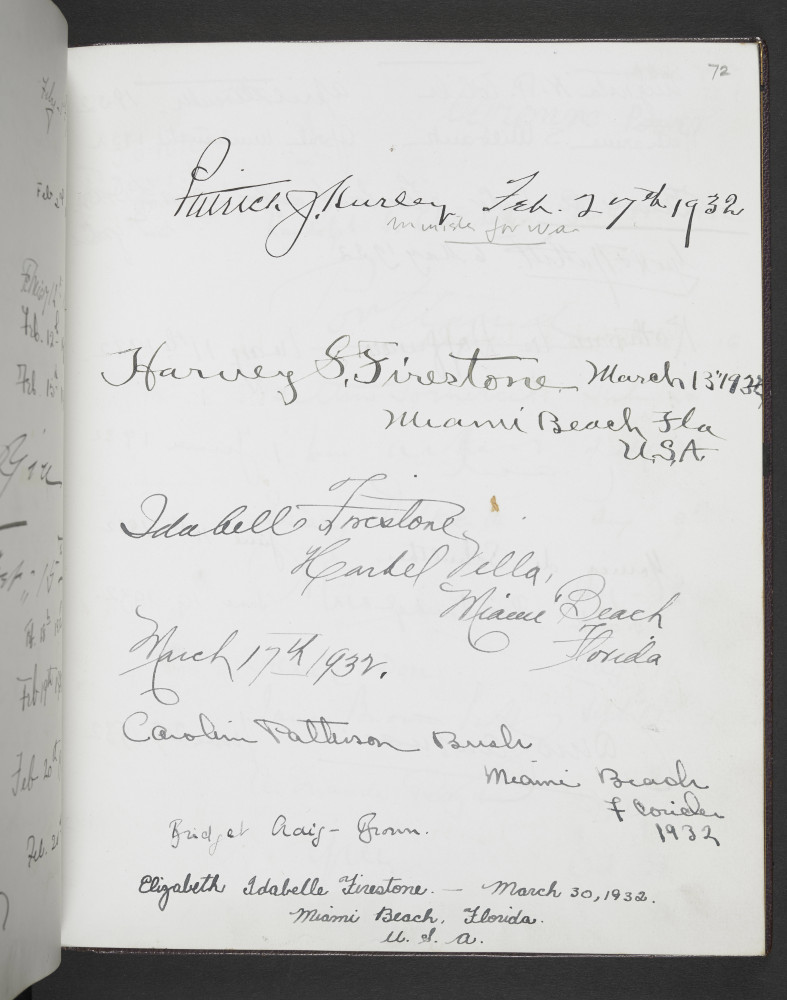 72
Patrick J. Hurley Feb. 27th 1932
Minister for War
Harvey S. Firestone March 13 1932
Miami Beach Fla
U.S.A.
Idabelle Firestone
Harbel Villa,
Miami Beach
Florida
March 17th 1932.
Carolin Patterson Bush
Miami Beach
Florida
1932
Bridget Craig-Brown.
Elizabeth Idabelle Firestone. — March 30, 1932.
Miami Beach, Florida.
U. S. A.
Feb. 20th